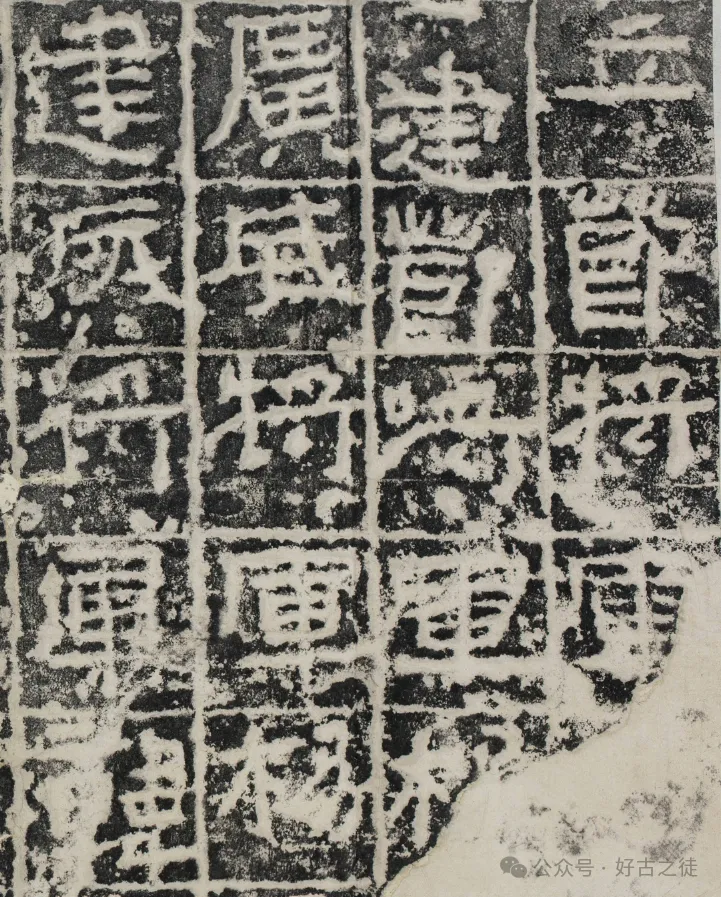 立節將軍
建節將軍
廣威將軍
建將軍
公众号 · 好古之徒